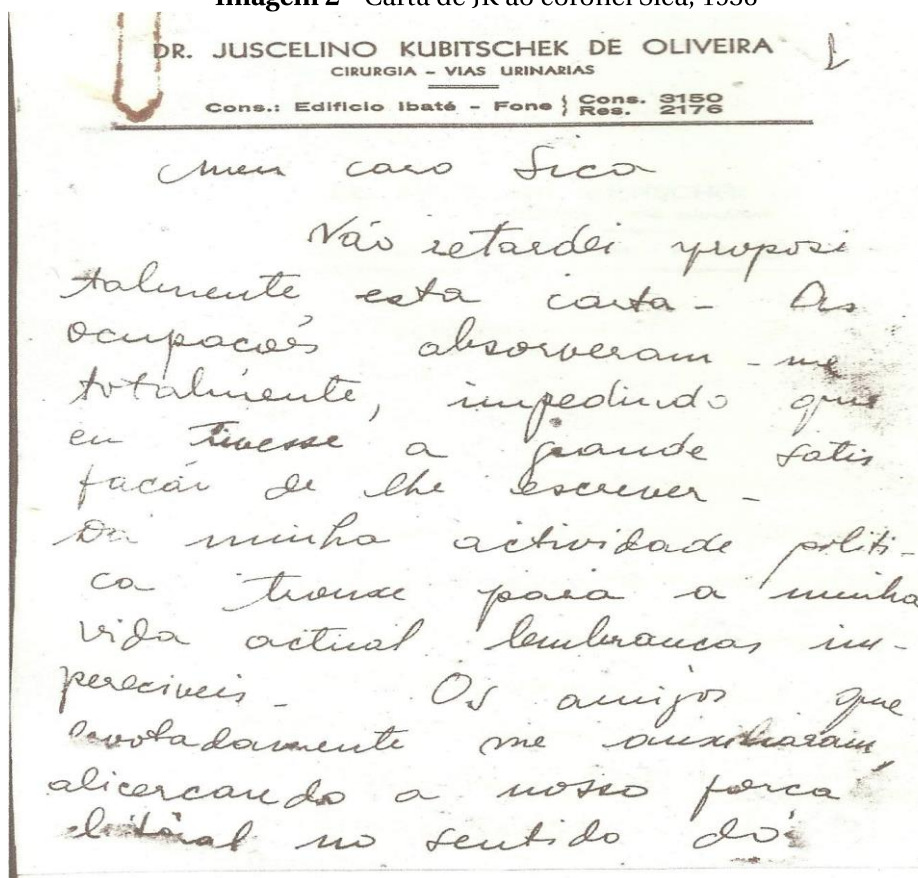 Imagem 2 - Carta de JK ao coronel Sica, 1938
DR. JUSCELINO KUBITSCHEK DE OLIVEIRA
CIRURGIA - VIAS URINARIAS
Cons.: Edificio Ibaté - Fone } Cons. 3150
Res. 2176
Meu caro Sica
Não retardei proposi
talmente esta carta - As
ocupacoẽs absorveram-me
totalmente, impedindo que
eu tivesse a grande satis
facão de lhe escrever -
Da minha actividade politi-
ca trouxe para a minha
vida actual lembrancas im-
pereciveis - Os amigos que
devotadamente me auxiliaram,
alicercando a nossa forca
eleitoral no sentido do